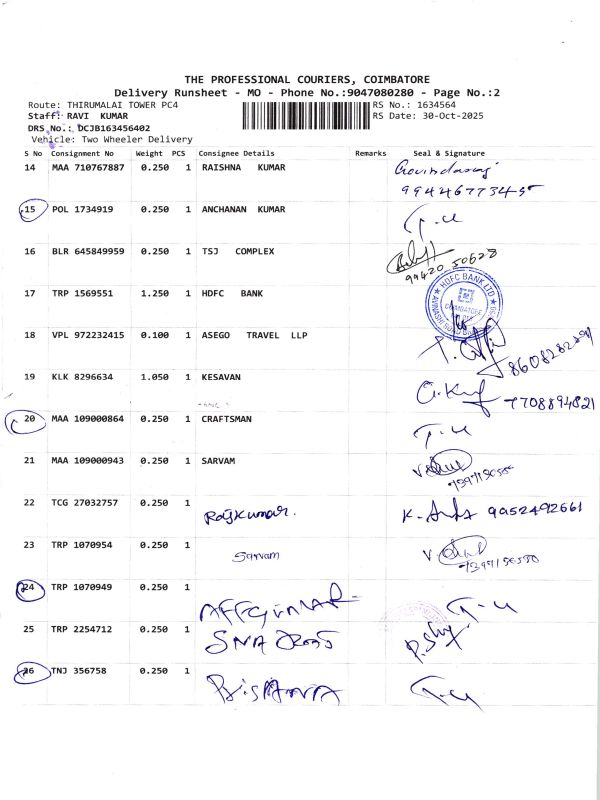 THE PROFESSIONAL COURIERS, COIMBATORE
Delivery Runsheet - MO - Phone No.:9047080280 - Page No.:2
Route: THIRUMALAI TOWER PC4 RS No.: 1634564
Staff: RAVI KUMAR RS Date: 30-Oct-2025
DRS No.: DCJB163456402
Vehicle: Two Wheeler Delivery
S No Consignment No Weight PCS Consignee Details Remarks Seal & Signature
14 MAA 710767887 0.250 1 RAISHNA KUMAR Govindasamy
9944677345
15 POL 1734919 0.250 1 ANCHANAN KUMAR
16 BLR 645849959 0.250 1 TSJ COMPLEX
99420 50628
17 TRP 1569551 1.250 1 HDFC BANK HDFC BANK LTD
COIMBATORE
18 VPL 972232415 0.100 1 ASEGO TRAVEL LLP
19 KLK 8296634 1.050 1 KESAVAN
7708894821
20 MAA 109000864 0.250 1 CRAFTSMAN
21 MAA 109000943 0.250 1 SARVAM
22 TCG 27032757 0.250 1 Rajkumar. 9952492661
23 TRP 1070954 0.250 1 Sarvam
24 TRP 1070949 0.250 1
25 TRP 2254712 0.250 1
26 TNJ 356758 0.250 1